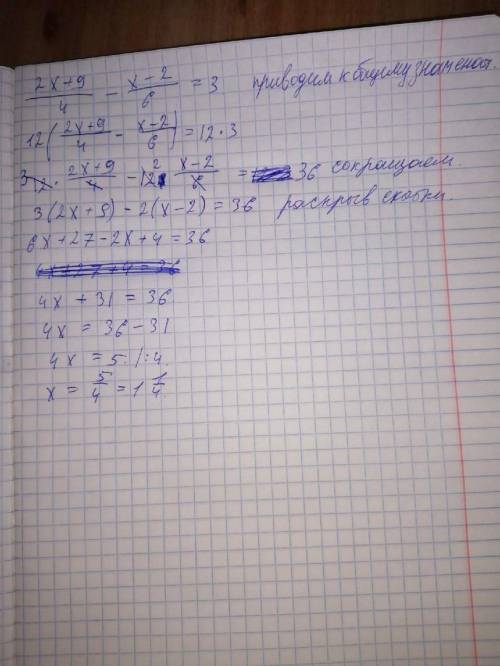 (2x+9)/4 - (x-2)/6 = 3 приводим к общему знаменат.
12((2x+9)/4 - (x-2)/6) = 12·3
3 12 · (2x+9)/4 - 12 2 · (x-2)/6 = 36 сокращаем.
3(2x+9) - 2(x-2) = 36 раскрыв скобки.
6x+27-2x+4=36
4x + 31 = 36
4x = 36-31
4x = 5 |:4
x = 5/4 = 1 1/4